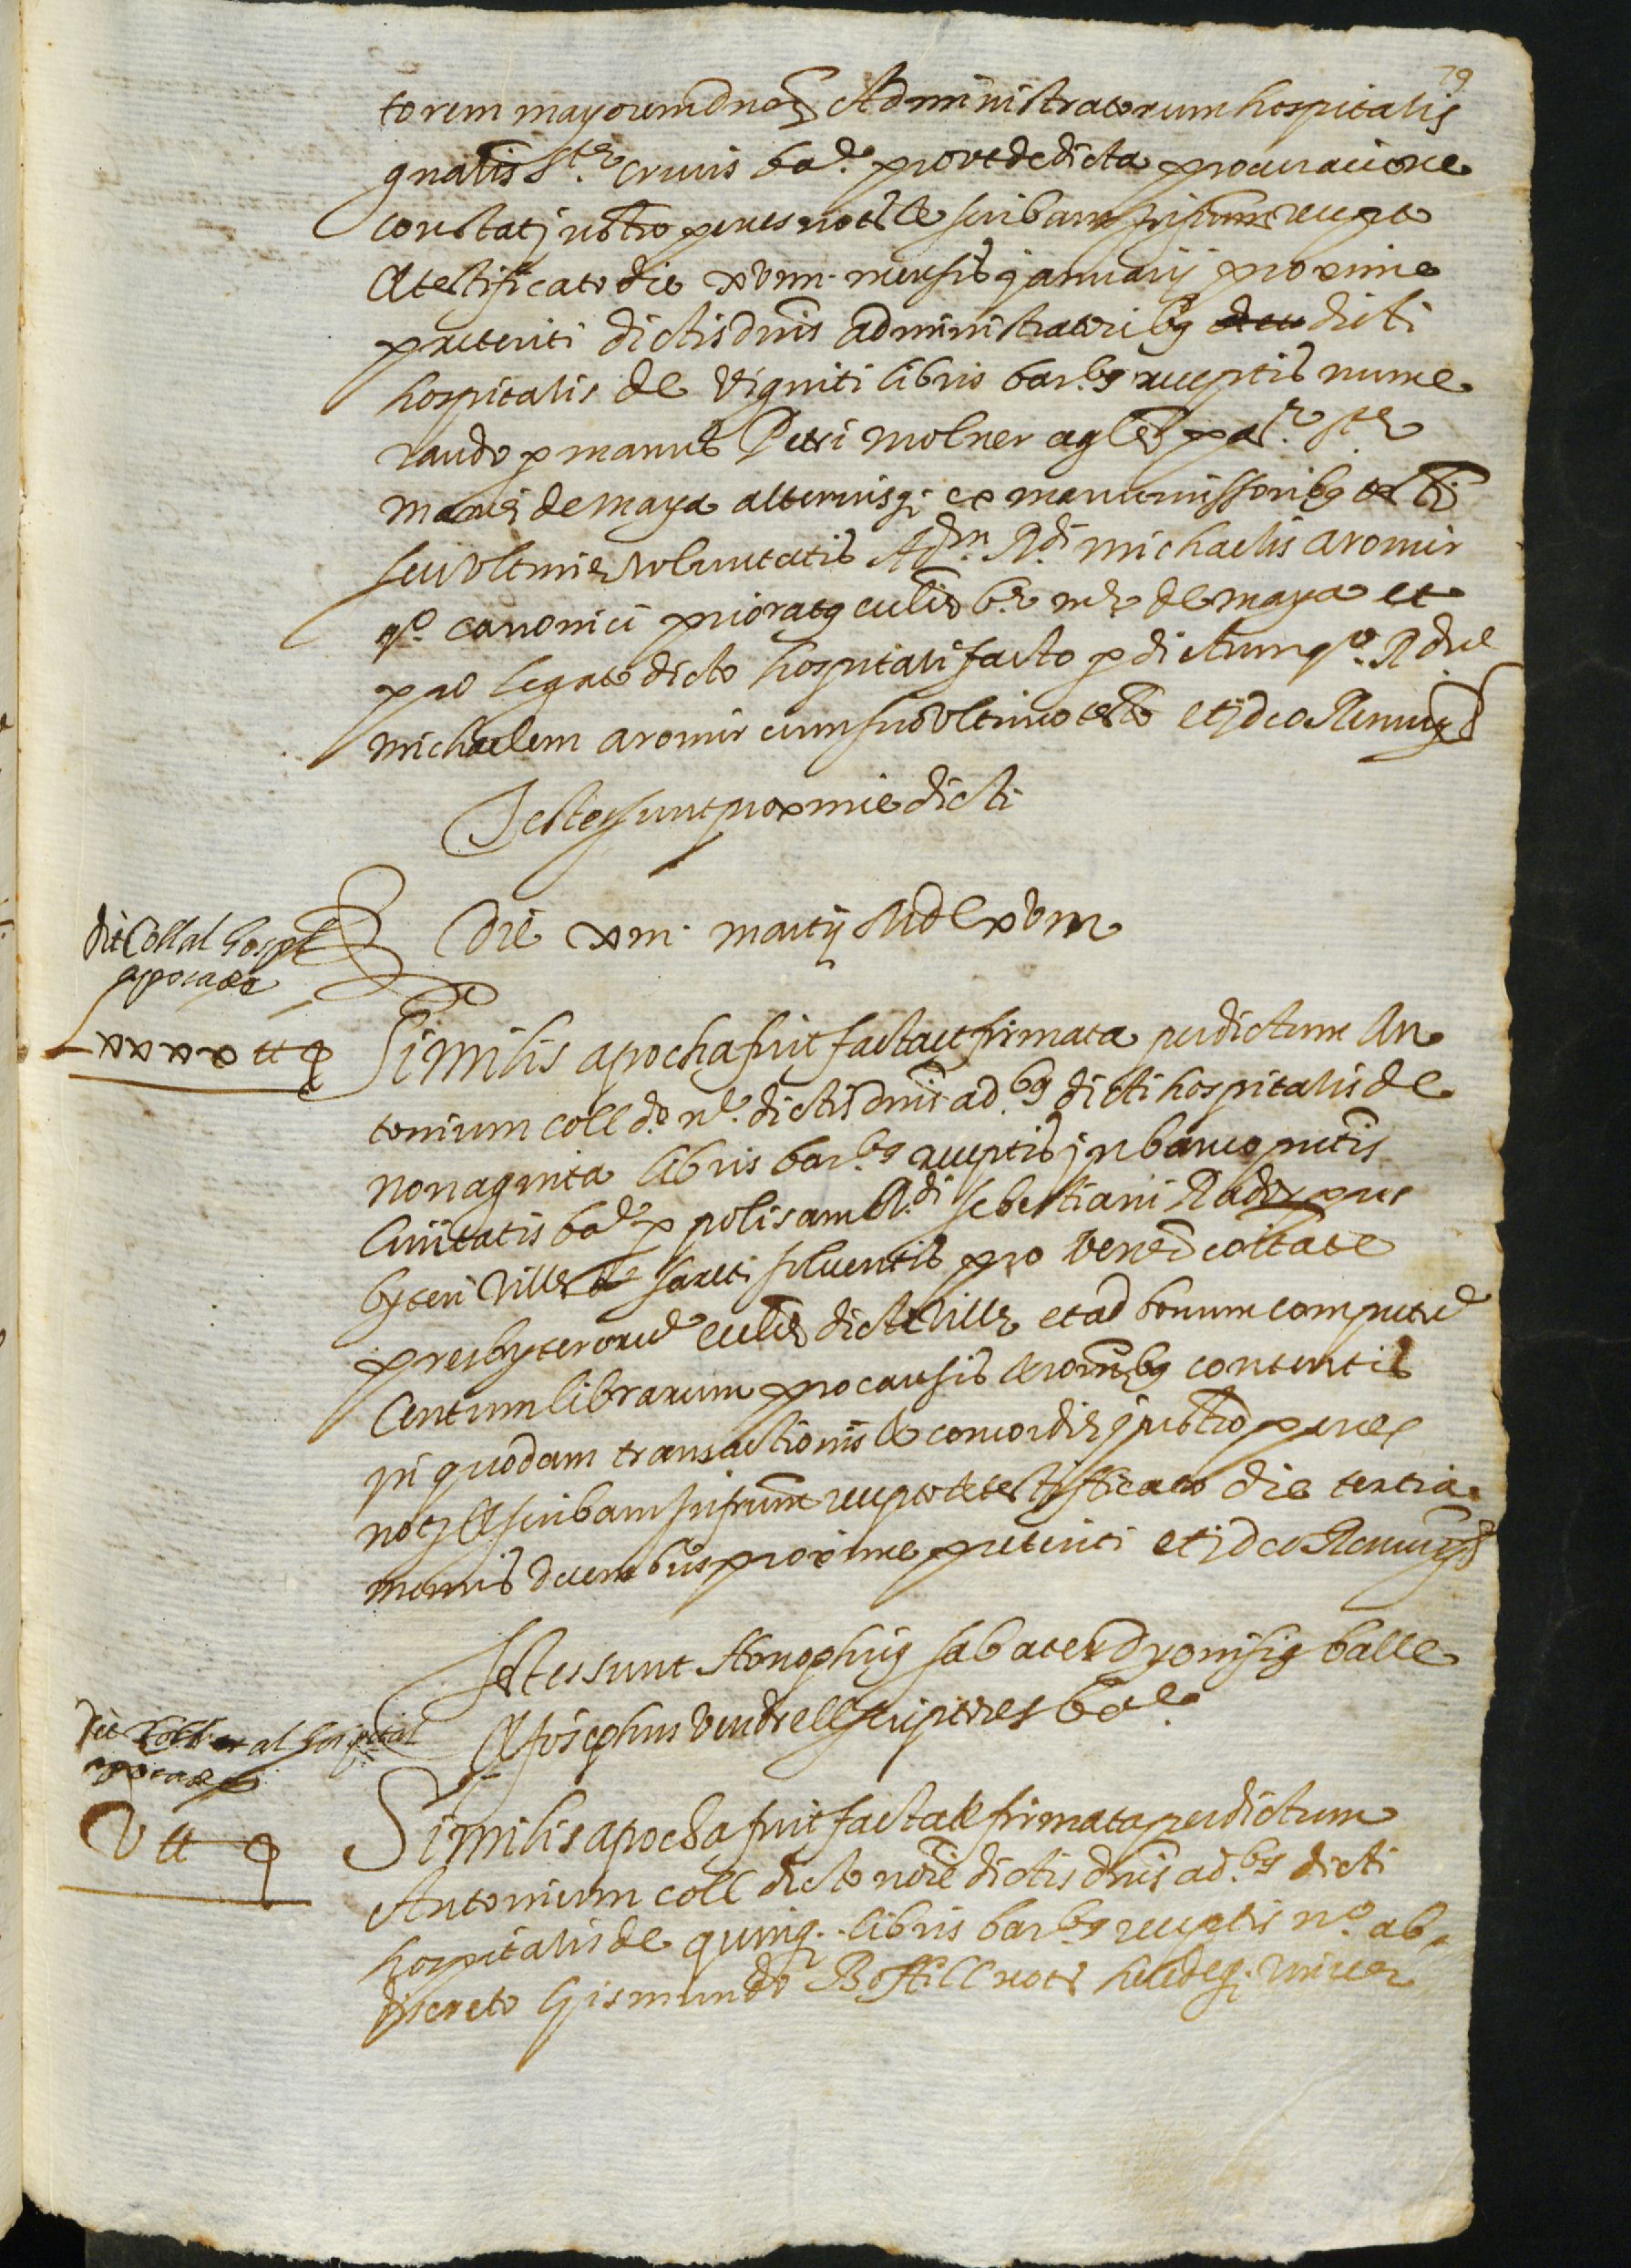 79
torem mayorem dnoȝ Administratorum hospitalis
gnalis Ste. Crucis bae. prout de dicta procuracione
constat instro penes notm & scribam infrum recepto
& testificato die xviiii. mensis januarij proxime
preteriti dictis dnis administratoribȝ dicti
hospitalis de viginti libris barbȝ receptis nume
rando p manus Petri Molner agle pae. Ste
marie de maya alteriusqȝ ex manumissoribȝ testi
seu ultime voluntatis Adm. Rdi michaelis aromir
qo. canonici prioratȝ ecclie be. me. de maya et
pro legato dicto hospitali facto p dictum qo. R dne
michaelem aromir cum suo ultimo testo et ideo Renuns
Testes sunt proxime dicti
dit Coll al hospl
apocaes
xxxx tt q
Die xiii. martij MDLxviiii
Similis apocha fuit facta et firmata per dictum An
tonium coll do. ne. dictis dnis adbȝ dicti hospitalis de
nonaginta libris barbȝ receptis in banco putis
Civitatis bae. p polisam Rdi Sebestiani Rador pres
byteri ville de sancti solventis pro vened coitate
presbyterorum ecclie dicte ville et ad bonum computum
Centum librarum pro causis & roinibȝ contentis
in quodam transactionis & concordie instro penes
notȝ & scribam infrum recepto & testifficato die tertia
mensis decembris proxime preteriti et ideo Renuns
Testes sunt Honophriȝ sabater dyonisiȝ balle
& Josephus Vendrell scriptores bae.
dit Coll al hospital
apocaes
V tt q
Similis apocha fuit facta & firmata per dictum
Antonium coll dicto noie dictis dnis adbȝ dicti
hospitalis de quinqȝ. libris barbȝ receptis no. ab
discreto Gismundo Bofill noto heredeqȝ. univer